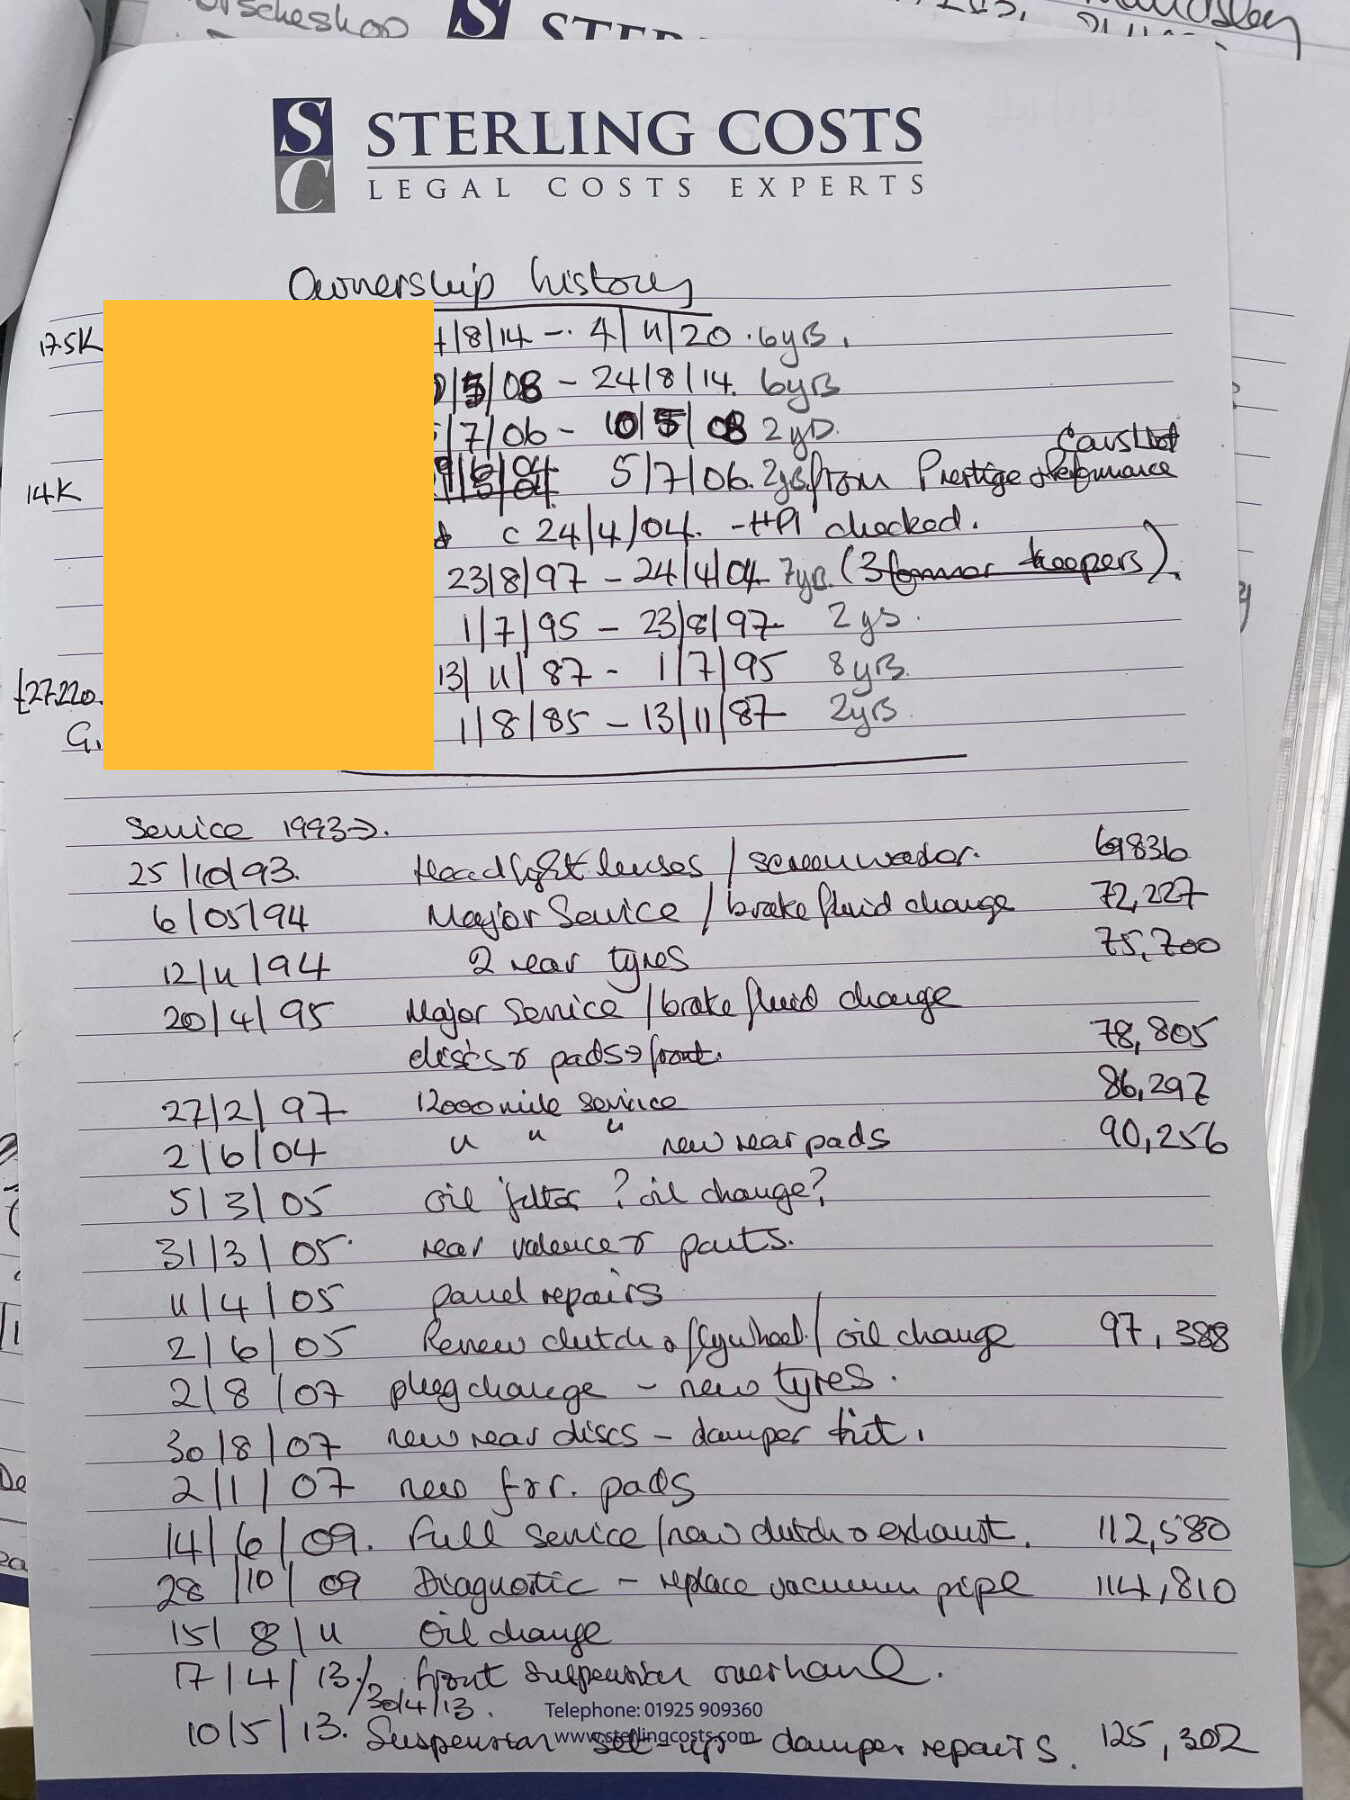 STERLING COSTS
LEGAL COSTS EXPERTS
Ownership history
17.5K /8/14 - 4/11/20 . 6yrs.
/5/08 - 24/8/14. 6yrs
/7/06 - 10/5/08 2yrs.
Cars Ltd
14K 5/7/06. 2yrs from Prestige & Performance
c 24/4/04. - HPI checked.
23/8/97 - 24/4/04 7yrs. (3 former keepers).
1/7/95 - 23/8/97 2ys.
13/11/87 - 1/7/95 8yrs.
£27,220.
G. 1/8/85 - 13/11/87 2yrs
Service 1993→.
25/10/93. Headlight lenses / screen washer. 69836
6/05/94 Major Service / brake fluid change 72,227
12/11/94 2 rear tyres 75,700
20/4/95 Major Service / brake fluid change
discs & pads → front. 78,805
27/2/97 12000 mile service 86,297
2/6/04 " " " new rear pads 90,256
5/3/05 oil filter ? oil change?
31/3/05 rear valence & parts.
11/4/05 panel repairs
2/6/05 Renew clutch & flywheel / oil change 97,388
2/8/07 plug change - new tyres.
30/8/07 new rear discs - damper kit.
2/1/07 new f&r. pads
14/6/09. Full service / new clutch & exhaust. 112,580
28/10/09 Diagnostic - replace vacuum pipe 114,810
15/8/11 Oil change
17/4/13 / 30/4/13. front suspension overhaul.
Telephone: 01925 909360
10/5/13. Suspension set-up - damper repairs. 125,302
www.sterlingcosts.com